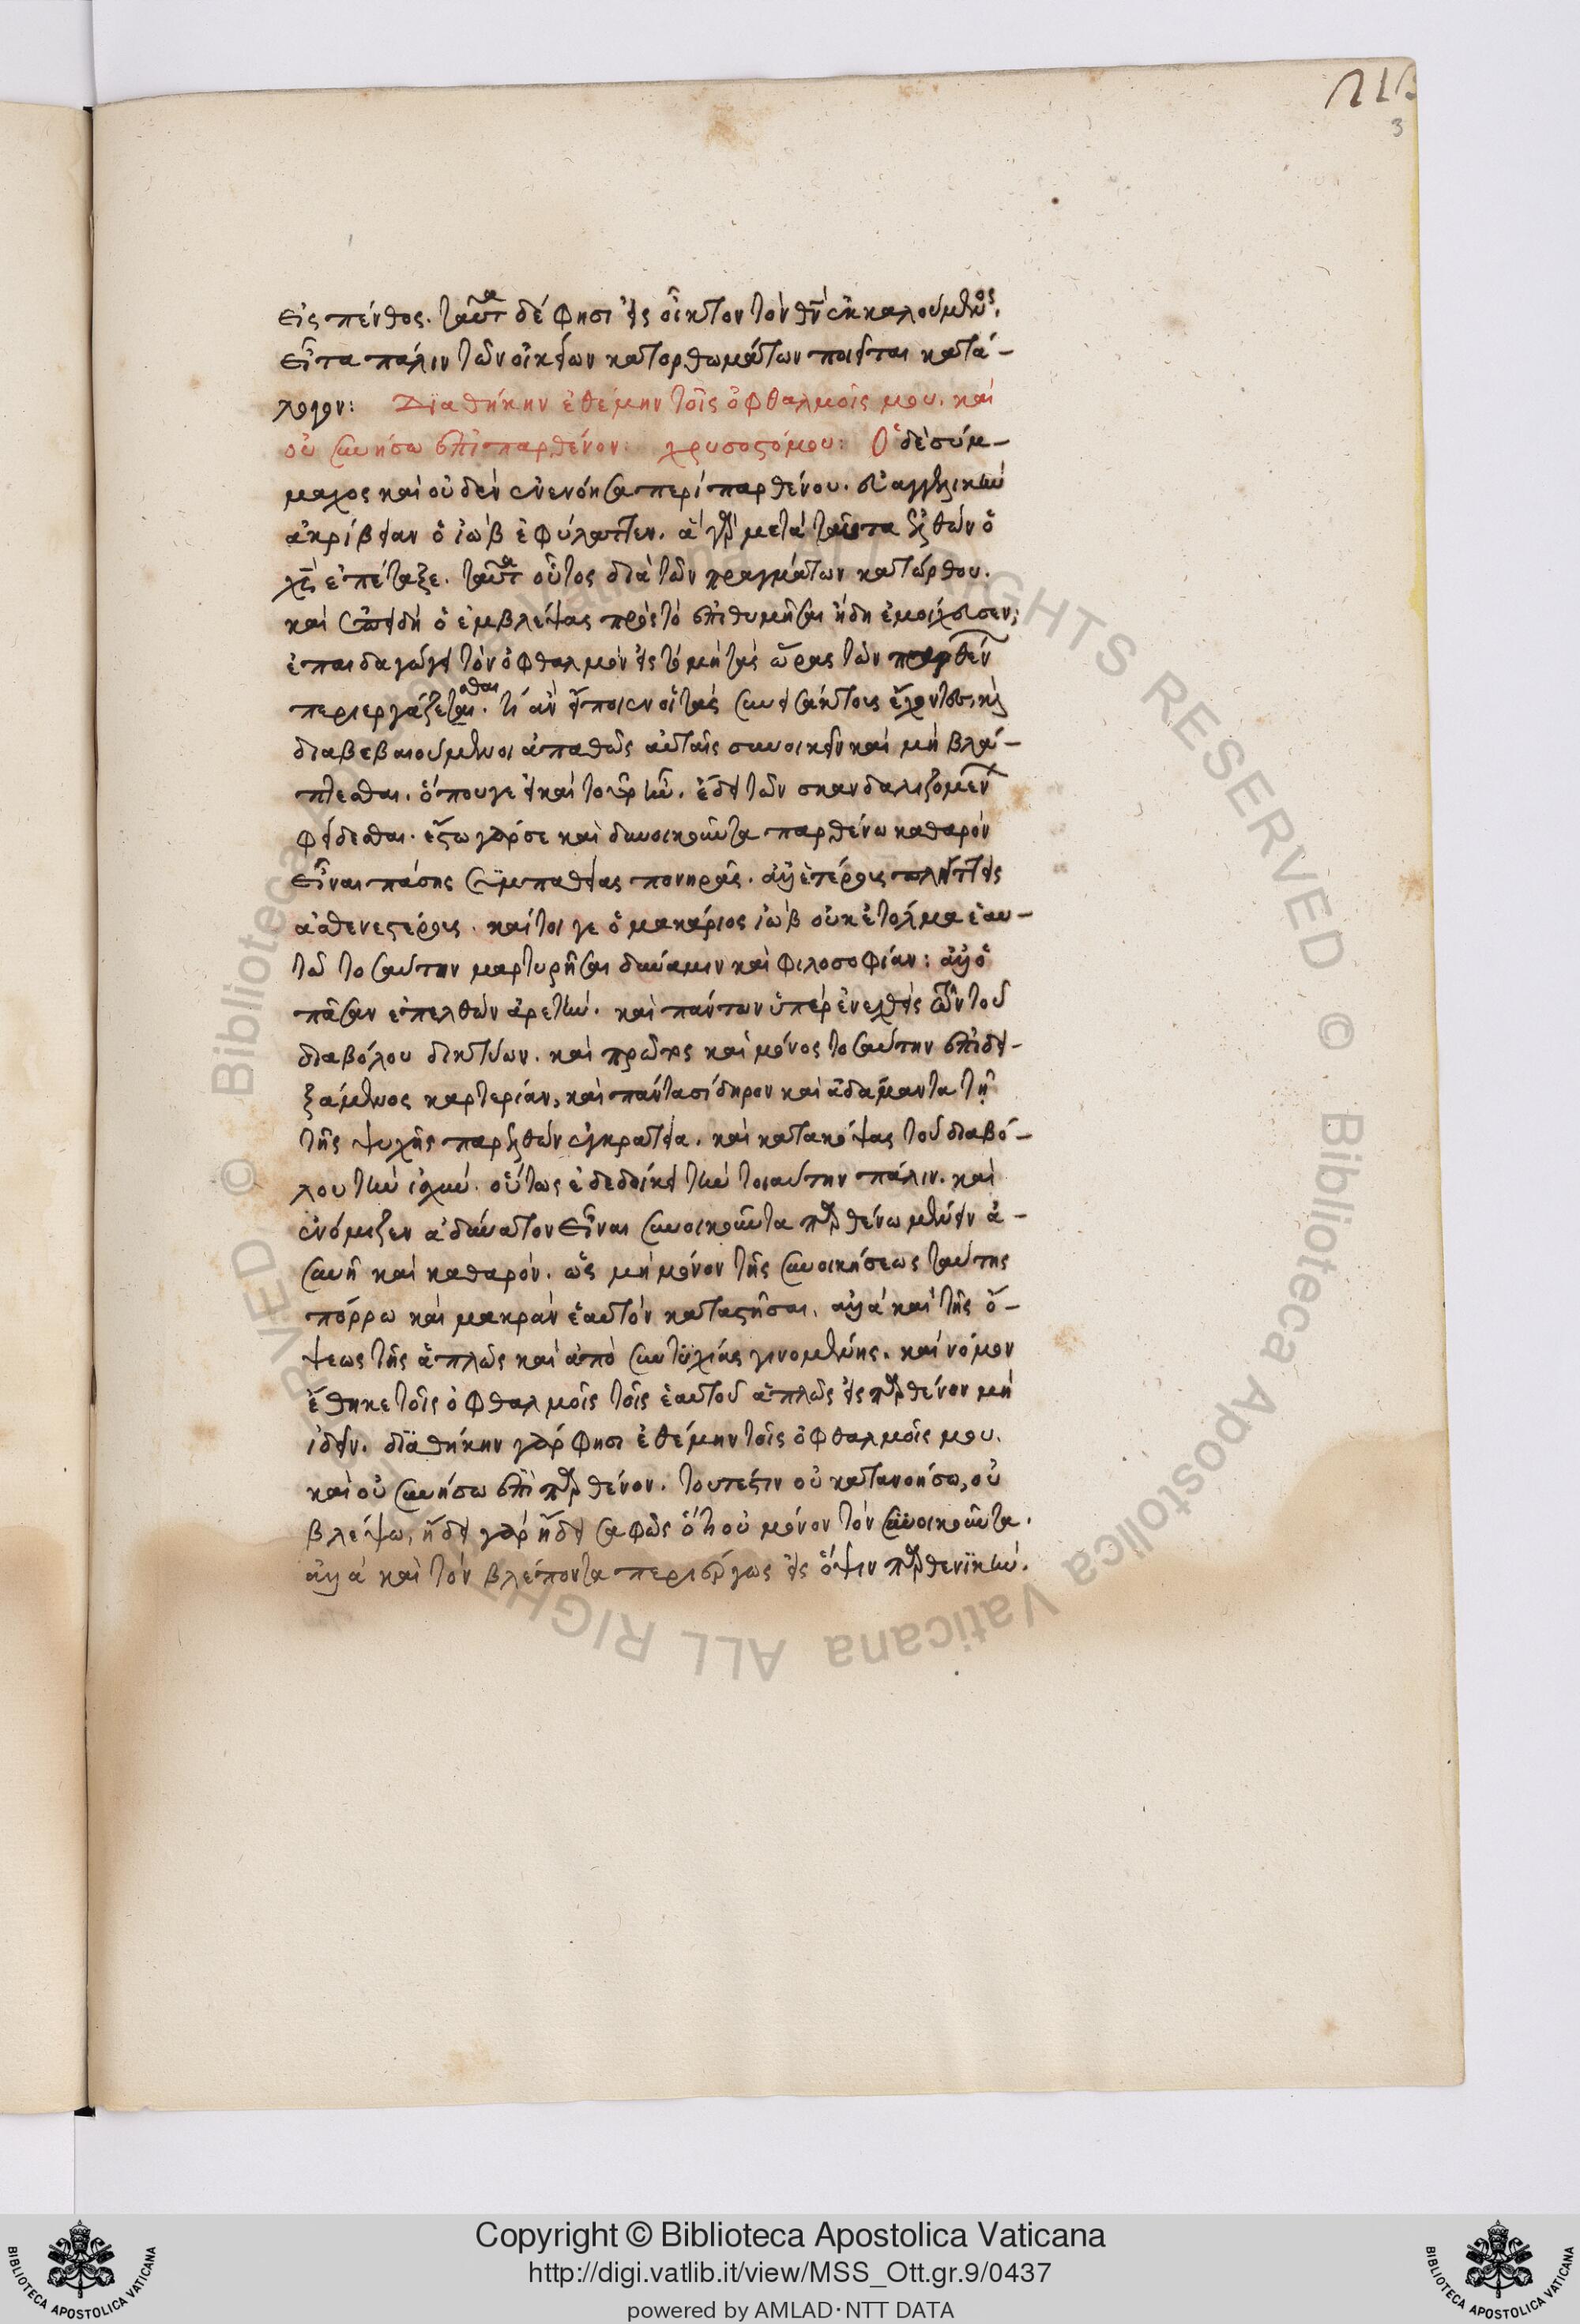 εἰς πένθος. ταῦτα δέ φησι εἰς οἶκτον τὸν θ̅ν̅ ἐκκαλούμενος.
εἶτα πάλιν τῶν οἰκείων κατορθωμάτων ποιεῖται κατά-
λογον: Διαθήκην ἐθέμην τοῖς ὀφθαλμοῖς μου. καὶ
οὐ συνήσω ἐπὶ παρθένον: χρυσοστόμου: Ὁ δὲ σύμ-
μαχος καὶ οὐδὲν ἐνενόησα περὶ παρθένου. εὐαγγελικὴν
ἀκρίβειαν ὁ ἰὼβ ἐφύλαττεν. ἃ γὰρ μετὰ ταῦτα ἐλθὼν ὁ
χ̅ς̅ ἐπέταξε. ταῦτα οὗτος διὰ τῶν πραγμάτων κατώρθου.
καὶ ἐπειδὴ ὁ ἐμβλέψας πρὸς τὸ ἐπιθυμῆσαι ἤδη ἐμοίχευσεν;
ἐπαιδαγώγει τὸν ὀφθαλμὸν εἰς τὸ μὴ τὰς ὥρας τῶν παρθέν
περιεργάζεσθαι. τί ἂν εἴποιεν οἱ τὰς συνεισάκτους ἔχοντες, καὶ
διαβεβαιούμενοι ἀπαθῶς αὐταῖς συνοικεῖν καὶ μὴ βλά-
πτεσθαι. ὅπου γε εἰ καὶ τοῦτο ἦν. ἔδει τῶν σκανδαλιζομέν
φείδεσθαι. ἔξω γάρ σε καὶ συνοικοῦντα παρθένω καθαρὸν
εἶναι πάσης συμπαθείας πονηρᾶς. ἀλλ' ἑτέρους πλήττεις
ἀσθενεστέρους. καίτοι γε ὁ μακάριος ἰὼβ οὐκ ἐτόλμα ἑαυ-
τῶ τοσαύτην μαρτυρῆσαι δύναμιν καὶ φιλοσοφίαν: ἀλλ' ὁ
πᾶσαν ἐπελθὼν ἀρετήν. καὶ πάντων ὑπερενεχθεὶς τῶν τοῦ
διαβόλου δικτύων. καὶ πρῶτος καὶ μόνος τοσαύτην ἐπιδει-
ξάμενος καρτερίαν, καὶ πάντα σίδηρον καὶ ἀδάμαντα τῆ
τῆς ψυχῆς παρελθὼν ἐγκρατεία. καὶ κατακόψας τοῦ διαβό-
λου τὴν ἰσχύν. οὕτως ἐδεδοίκει τὴν τοιαύτην πάλιν. καὶ
ἐνόμιζεν ἀδύνατον εἶναι συνοικοῦντα παρθένω μένειν ἀ-
σινῆ καὶ καθαρόν. ὡς μὴ μόνον τῆς συνοικήσεως ταύτης
πόρρω καὶ μακρὰν ἑαυτὸν καταστῆσαι. ἀλλὰ καὶ τῆς ὄ-
ψεως τῆς ἁπλῶς καὶ ἀπὸ συντυχίας γινομένης. καὶ νόμον
ἔθηκε τοῖς ὀφθαλμοῖς τοῖς ἑαυτοῦ ἁπλῶς εἰς παρθένον μὴ
ἰδεῖν. διαθήκην γάρ φησι ἐθέμην τοῖς ὀφθαλμοῖς μου.
καὶ οὐ συνήσω ἐπὶ παρθένον. τουτέστιν οὐ κατανοήσω, οὐ
βλέψω, ἤδει γὰρ ἤδει σαφῶς ὅτι οὐ μόνον τὸν συνοικοῦντα.
ἀλλὰ καὶ τὸν βλέποντα περιέργως εἰς ὄψιν παρθενικήν.
3
Copyright © Biblioteca Apostolica Vaticana
http://digi.vatlib.it/view/MSS_Ott.gr.9/0437
powered by AMLAD·NTT DATA